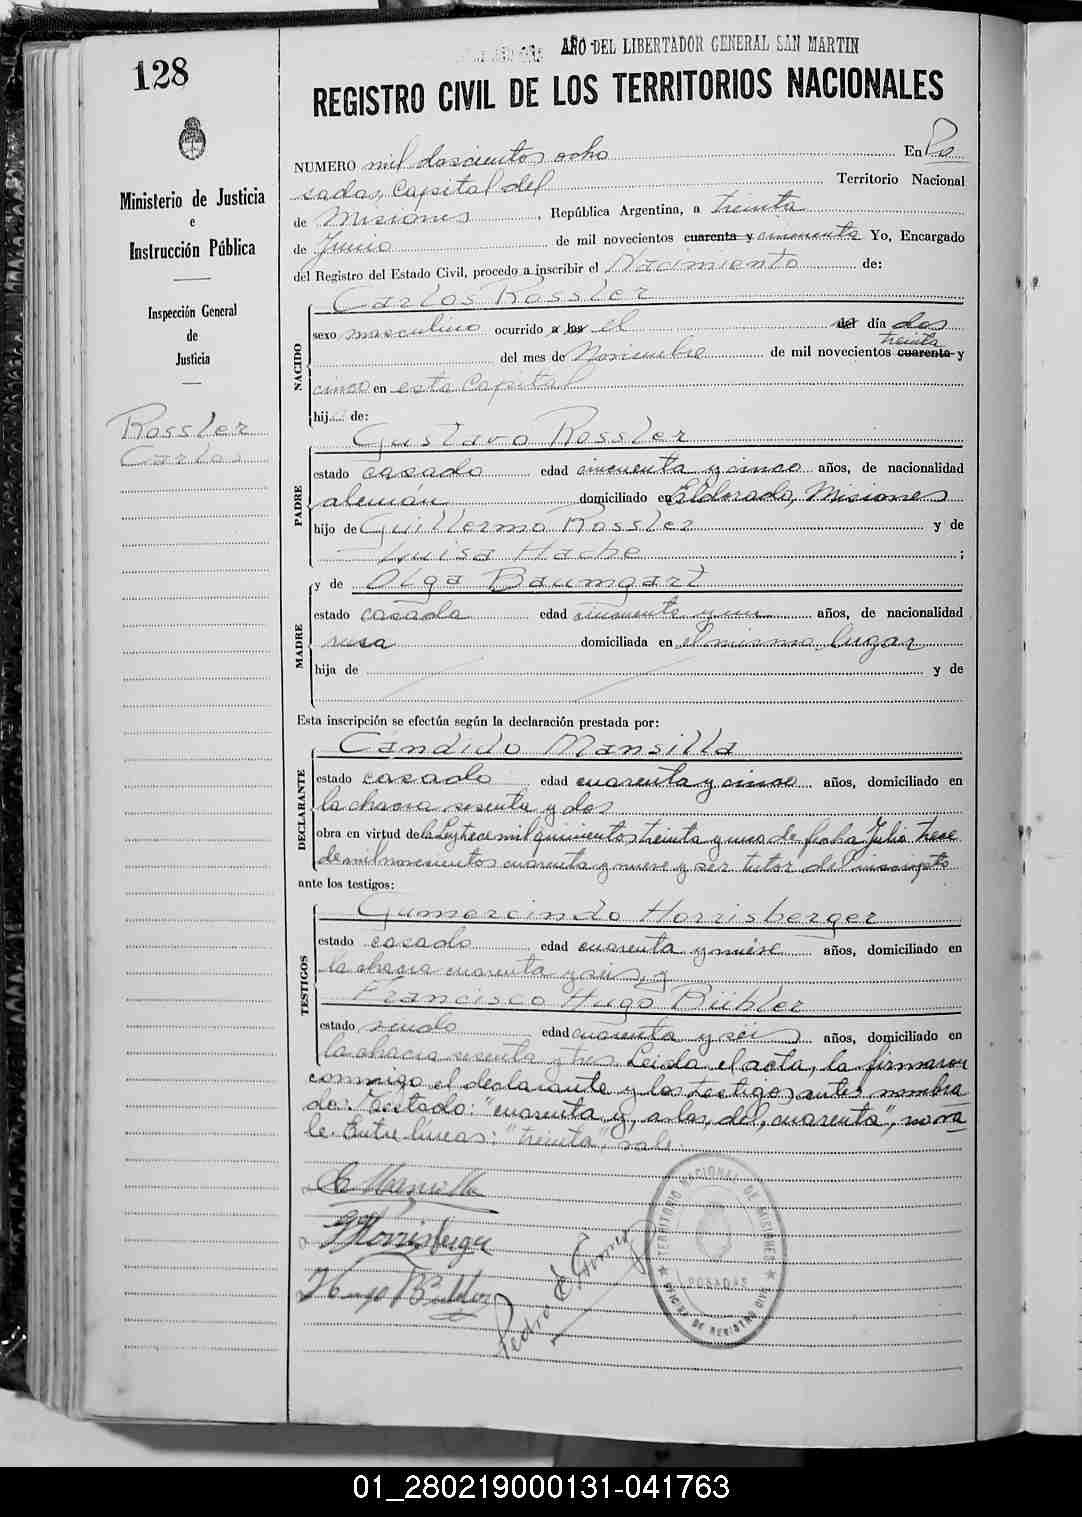 128
AÑO DEL LIBERTADOR GENERAL SAN MARTIN
REGISTRO CIVIL DE LOS TERRITORIOS NACIONALES
Ministerio de Justicia
e
Instrucción Pública
Inspección General
de
Justicia
Rossler
Carlos
NUMERO mil doscientos ocho En Po
sadas, Capital del Territorio Nacional
de Misiones, República Argentina, a treinta
de Junio de mil novecientos cuarenta y cincuenta Yo, Encargado
del Registro del Estado Civil, procedo a inscribir el Nacimiento de:
NACIDO
Carlos Rossler
sexo masculino ocurrido a las el del día dos
treinta
del mes de Noviembre de mil novecientos cuarenta y
cinco en esta Capital
hij de:
PADRE
Gustavo Rossler
estado casado edad cincuenta y cinco años, de nacionalidad
alemán domiciliado en Eldorado, Misiones
hijo de Guillermo Rossler y de
Luisa Hache ;
y de Olga Baumgart
MADRE
estado casada edad cincuenta y un años, de nacionalidad
rusa domiciliada en el mismo lugar
hija de y de
Esta inscripción se efectúa según la declaración prestada por:
DECLARANTE
Candido Mansilla
estado casado edad cuarenta y cinco años, domiciliado en
la chacra sesenta y dos
obra en virtud de la Ley trece mil quinientos treinta y uno de fecha Julio trece
de mil novecientos cuarenta y nueve y ser tutor del inscripto
ante los testigos:
TESTIGOS
Gumercindo Horrisberger
estado casado edad cuarenta y nueve años, domiciliado en
la chacra cuarenta y seis, y
Francisco Hugo Bühler
estado viudo edad cuarenta y seis años, domiciliado en
la chacra sesenta y tres. Leida el acta, la firmaron
conmigo el declarante y los testigos antes nombra
do: Testado: "cuarenta y, a las, del, cuarenta", no va
le. Entre líneas: "treinta", vale.
C Mansilla
GHorrisberger
Hugo Bühler
Pedro E. Gomez
TERRITORIO NACIONAL DE MISIONES
POSADAS
OFICINA DE REGISTRO CIVIL
01_280219000131-041763